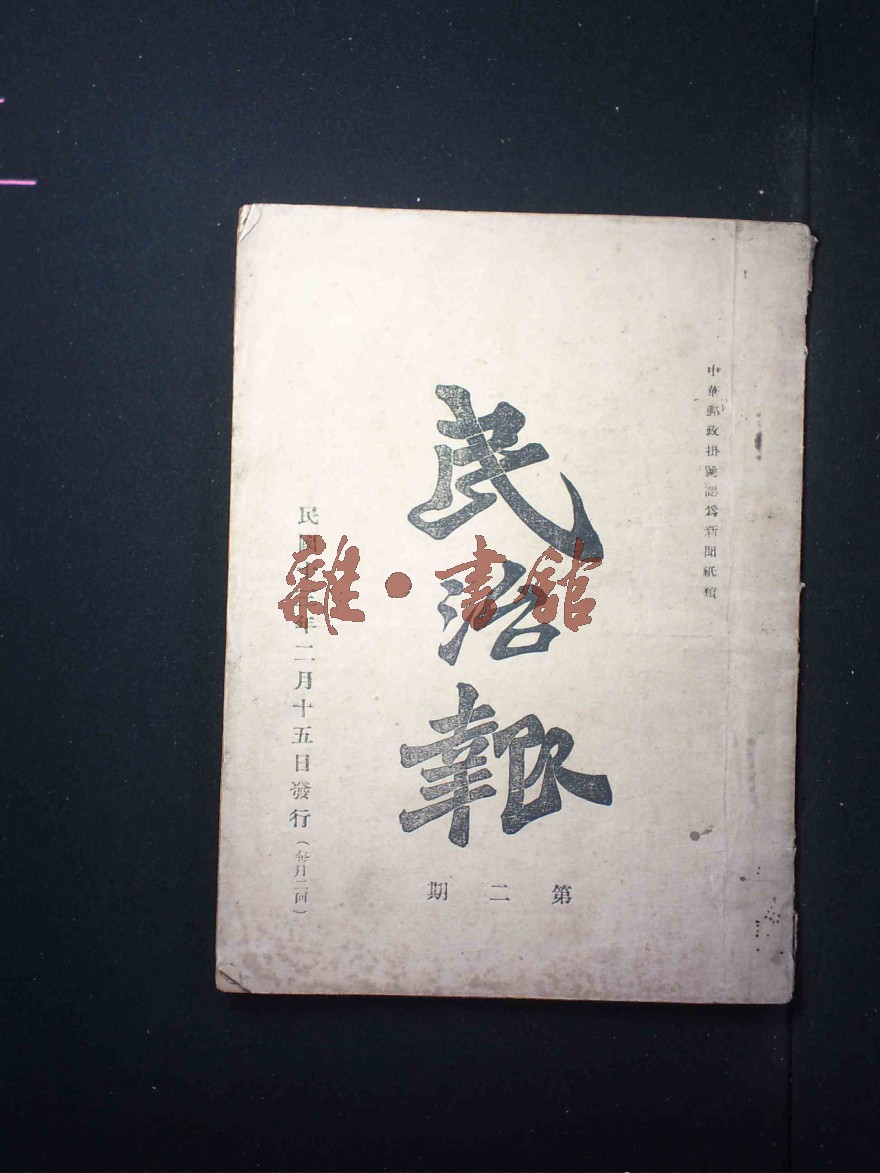 中華郵政掛號認爲新聞紙類
民治報
第二期
民國十三年二月十五日發行（每月二回）
雜·書館